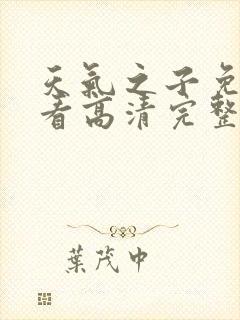 天氣之子免
看高清完整
葉茂中